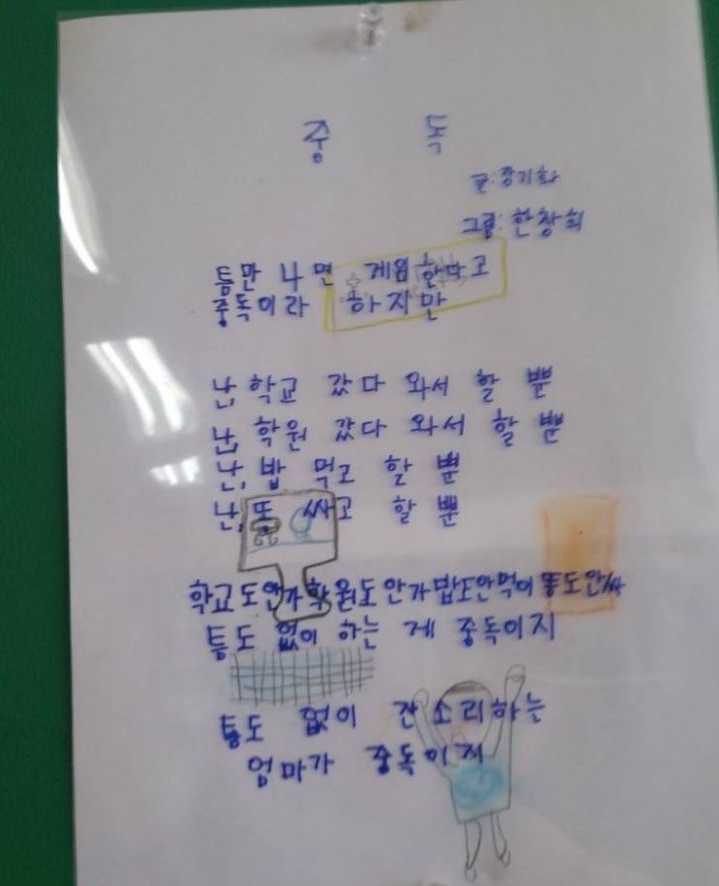 중 독
글: 중기화
그림: 한창희
틈만 나면 게임한다고
중독이라 하지만
난, 학교 갔다 와서 할 뿐
난, 학원 갔다 와서 할 뿐
난, 밥 먹고 할 뿐
난, 똥 싸고 할 뿐
학교도안가학원도안가밥도안먹어똥도안싸
틈도 없이 하는 게 중독이지
틈도 없이 잔소리하는
엄마가 중독이지